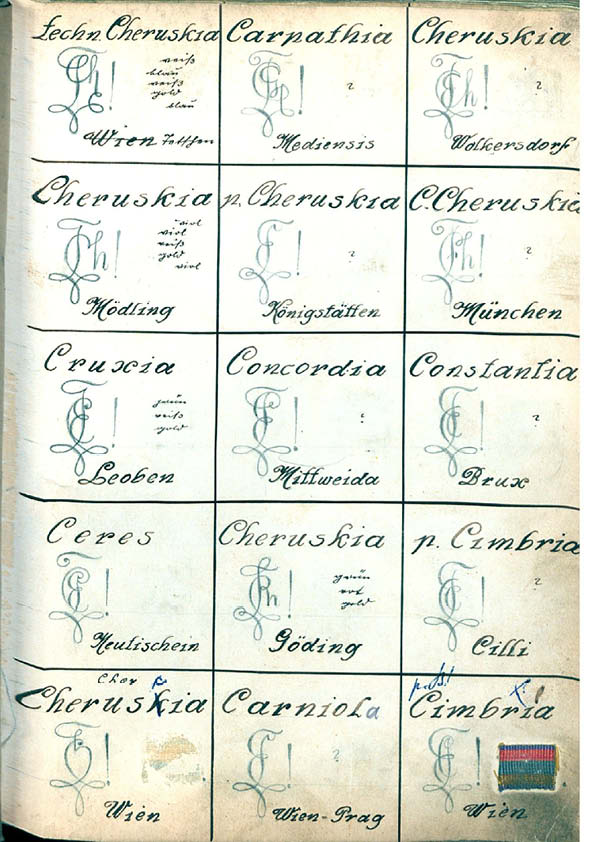 techn. Cheruskia
weiß
blau
weiß
gold
blau
Wien Tetschen
Carpathia
?
Mediensis
Cheruskia
?
Wolkersdorf
Cheruskia
viol
viol
weiß
gold
viol
Mödling
p. Cheruskia
?
Königstätten
C. Cheruskia
?
München
Cruxia
grün
weiß
gold
Leoben
Concordia
Mittweida
Constantia
?
Brux
Ceres
Neutischein
Cheruskia
grün
rot
gold
Göding
p. Cimbria
?
Cilli
Cheruskia
Wien
Carniola
?
Wien-Prag
Cimbria
Wien